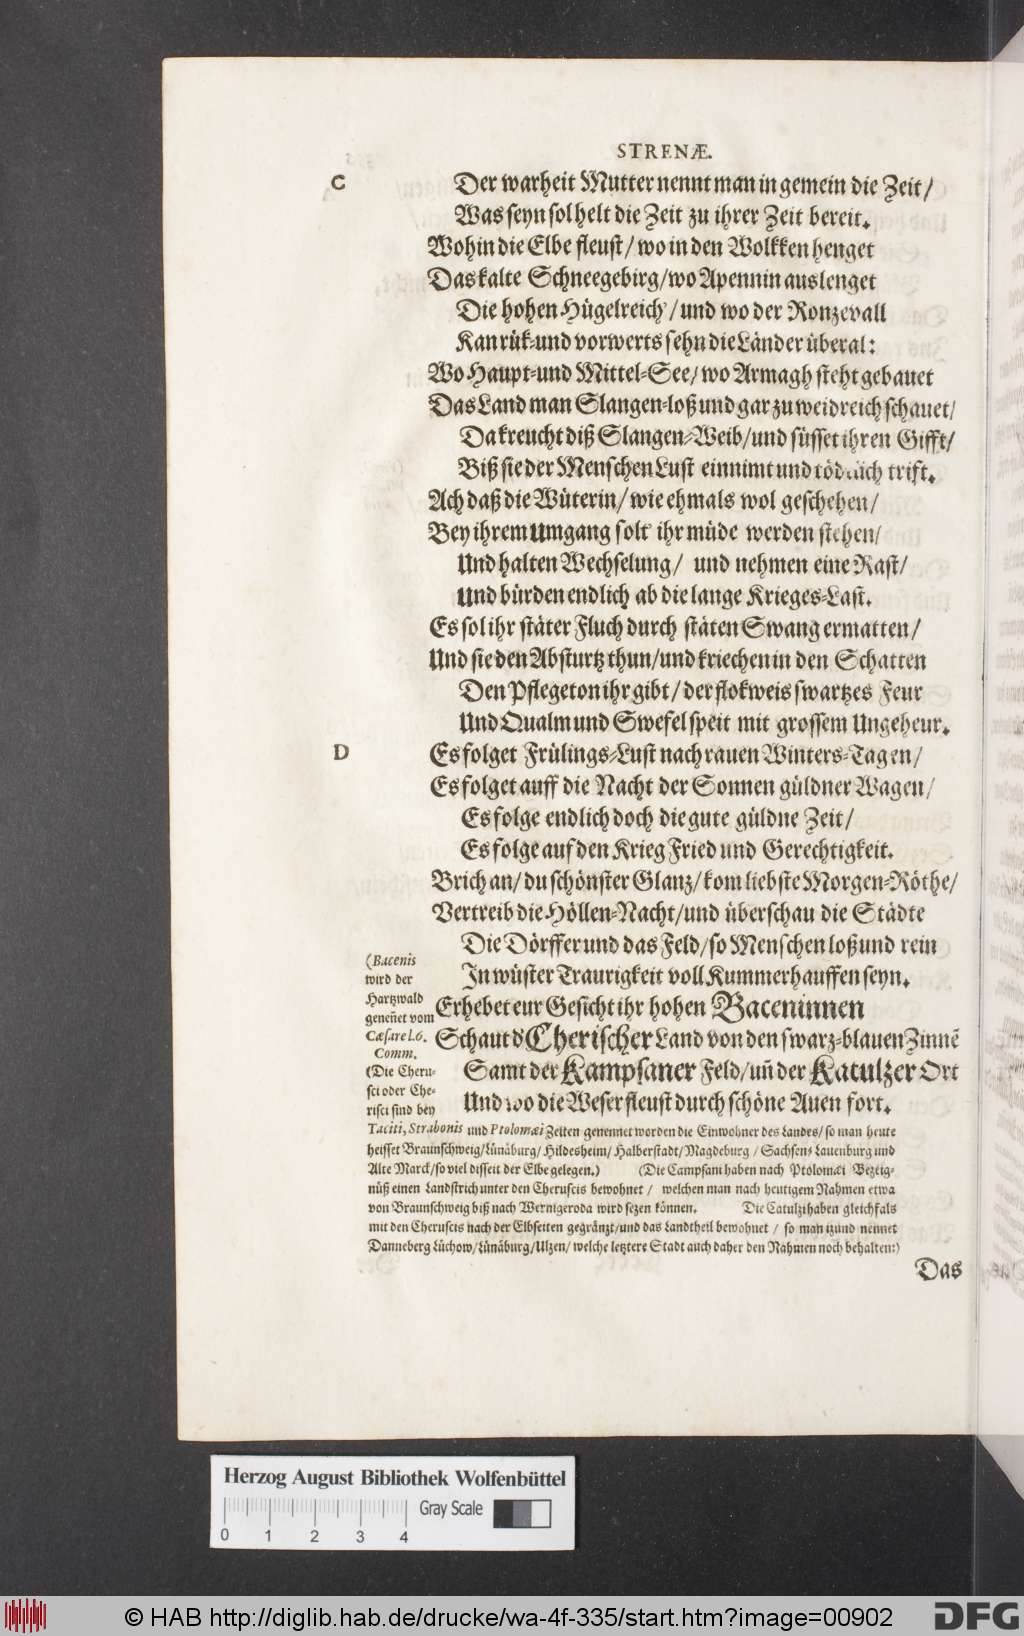 STRENÆ.
C
Der warheit Mutter nennt man in gemein die Zeit/
Was seyn sol helt die Zeit zu ihrer Zeit bereit.
Wohin die Elbe fleust/ wo in den Wolkken henget
Das kalte Schneegebirg/ wo Apennin auslenget
Die hohen Hügelreich'/ und wo der Ronzevall
Kan rük- und vorwerts sehn die Länder überal:
Wo Haupt- und Mittel-See/ wo Armagh steht gebauet
Das Land man Slangen-loß und gar zu weidreich schauet/
Da kreucht diß Slangen-Weib/ und süsset ihren Gifft/
Biß sie der Menschen Lust einnimt und tödtlich trift.
Ach daß die Wüterin/ wie ehmals wol geschehen/
Bey ihrem Umgang solt' ihr müde werden stehen/
Und halten Wechselung/ und nehmen eine Rast/
Und bürden endlich ab die lange Krieges-Last.
Es sol ihr stäter Fluch durch stäten Swang ermatten/
Und sie den Absturtz thun/ und kriechen in den Schatten
Den Pflegeton ihr gibt/ der flokweis swartzes Feur
Und Qualm und Swefel speit mit grossem Ungeheur.
D
Es folget Frülings-Lust nach rauen Winters-Tagen/
Es folget auff die Nacht der Sonnen güldner Wagen/
Es folge endlich doch die gute güldne Zeit/
Es folge auf den Krieg Fried und Gerechtigkeit.
Brich an/ du schönster Glanz/ kom liebste Morgen-Röthe/
Vertreib die Höllen-Nacht/ und überschau die Städte
Die Dörffer und das Feld/ so Menschen loß und rein
In wüster Traurigkeit voll Kummerhauffen seyn.
Erhebet eur Gesicht ihr hohen Baceninnen
Schaut d' Cherischer Land von den swarz-blauen Zinnẽ
Samt der Kampsaner Feld/ uñ der Katulzer Ort
Und wo die Weser fleust durch schöne Auen fort.
(Bacenis
wird der
Hartzwald
geneñet vom
Cæsare l. 6.
Comm.
(Die Cheru-
sci oder Che-
risci sind bey
Taciti, Strabonis und Ptolomæi Zeiten genennet worden die Einwohner des Landes/ so man heute
heisset Braunschweig/ Lünäburg/ Hildesheim/ Halberstadt/ Magdeburg/ Sachsen-Lauenburg und
Alte Marck/ so viel disseit der Elbe gelegen.) (Die Campsani haben nach Ptolomæi Bezeig-
nüß einen Landstrich unter den Cheruscis bewohnet/ welchen man nach heutigem Nahmen etwa
von Braunschweig biß nach Wernigeroda wird sezen können. Die Catulzi haben gleichfals
mit den Cheruscis nach der Elbseiten gegränzt/ und das Landtheil bewohnet/ so man itzund nennet
Danneberg Lüchow/ Lünäburg/ Ulzen/ welche letztere Stadt auch daher den Nahmen noch behalten:)
Das
Herzog August Bibliothek Wolfenbüttel
Gray Scale
0 1 2 3 4
© HAB http://diglib.hab.de/drucke/wa-4f-335/start.htm?image=00902
DFG